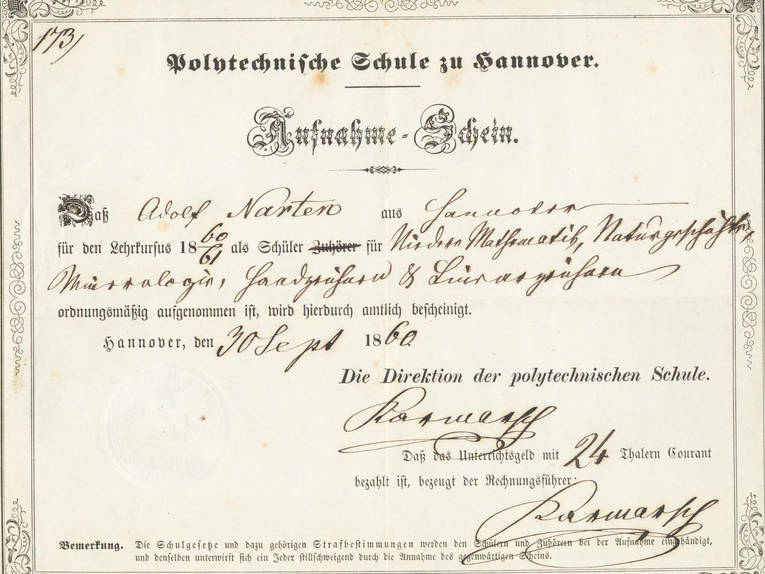 173)
Polytechnische Schule zu Hannover.
Aufnahme-Schein.
Daß Adolf Narten aus Hannover
für den Lehrkursus 18 60/61 als Schüler Zuhörer für Niedere Mathematik, Naturgeschichte,
Mineralogie, Handzeichnen & Linearzeichnen
ordnungsmäßig aufgenommen ist, wird hierdurch amtlich bescheinigt.
Hannover, den 30 Sept 1860.
Die Direktion der polytechnischen Schule.
Karmarsch
Daß das Unterrichtsgeld mit 24 Thalern Courant
bezahlt ist, bezeugt der Rechnungsführer:
Karmarsch
Bemerkung. Die Schulgesetze und dazu gehörigen Strafbestimmungen werden den Schülern und Zuhörern bei der Aufnahme eingehändigt,
und denselben unterwirft sich ein Jeder stillschweigend durch die Annahme des gegenwärtigen Scheins.